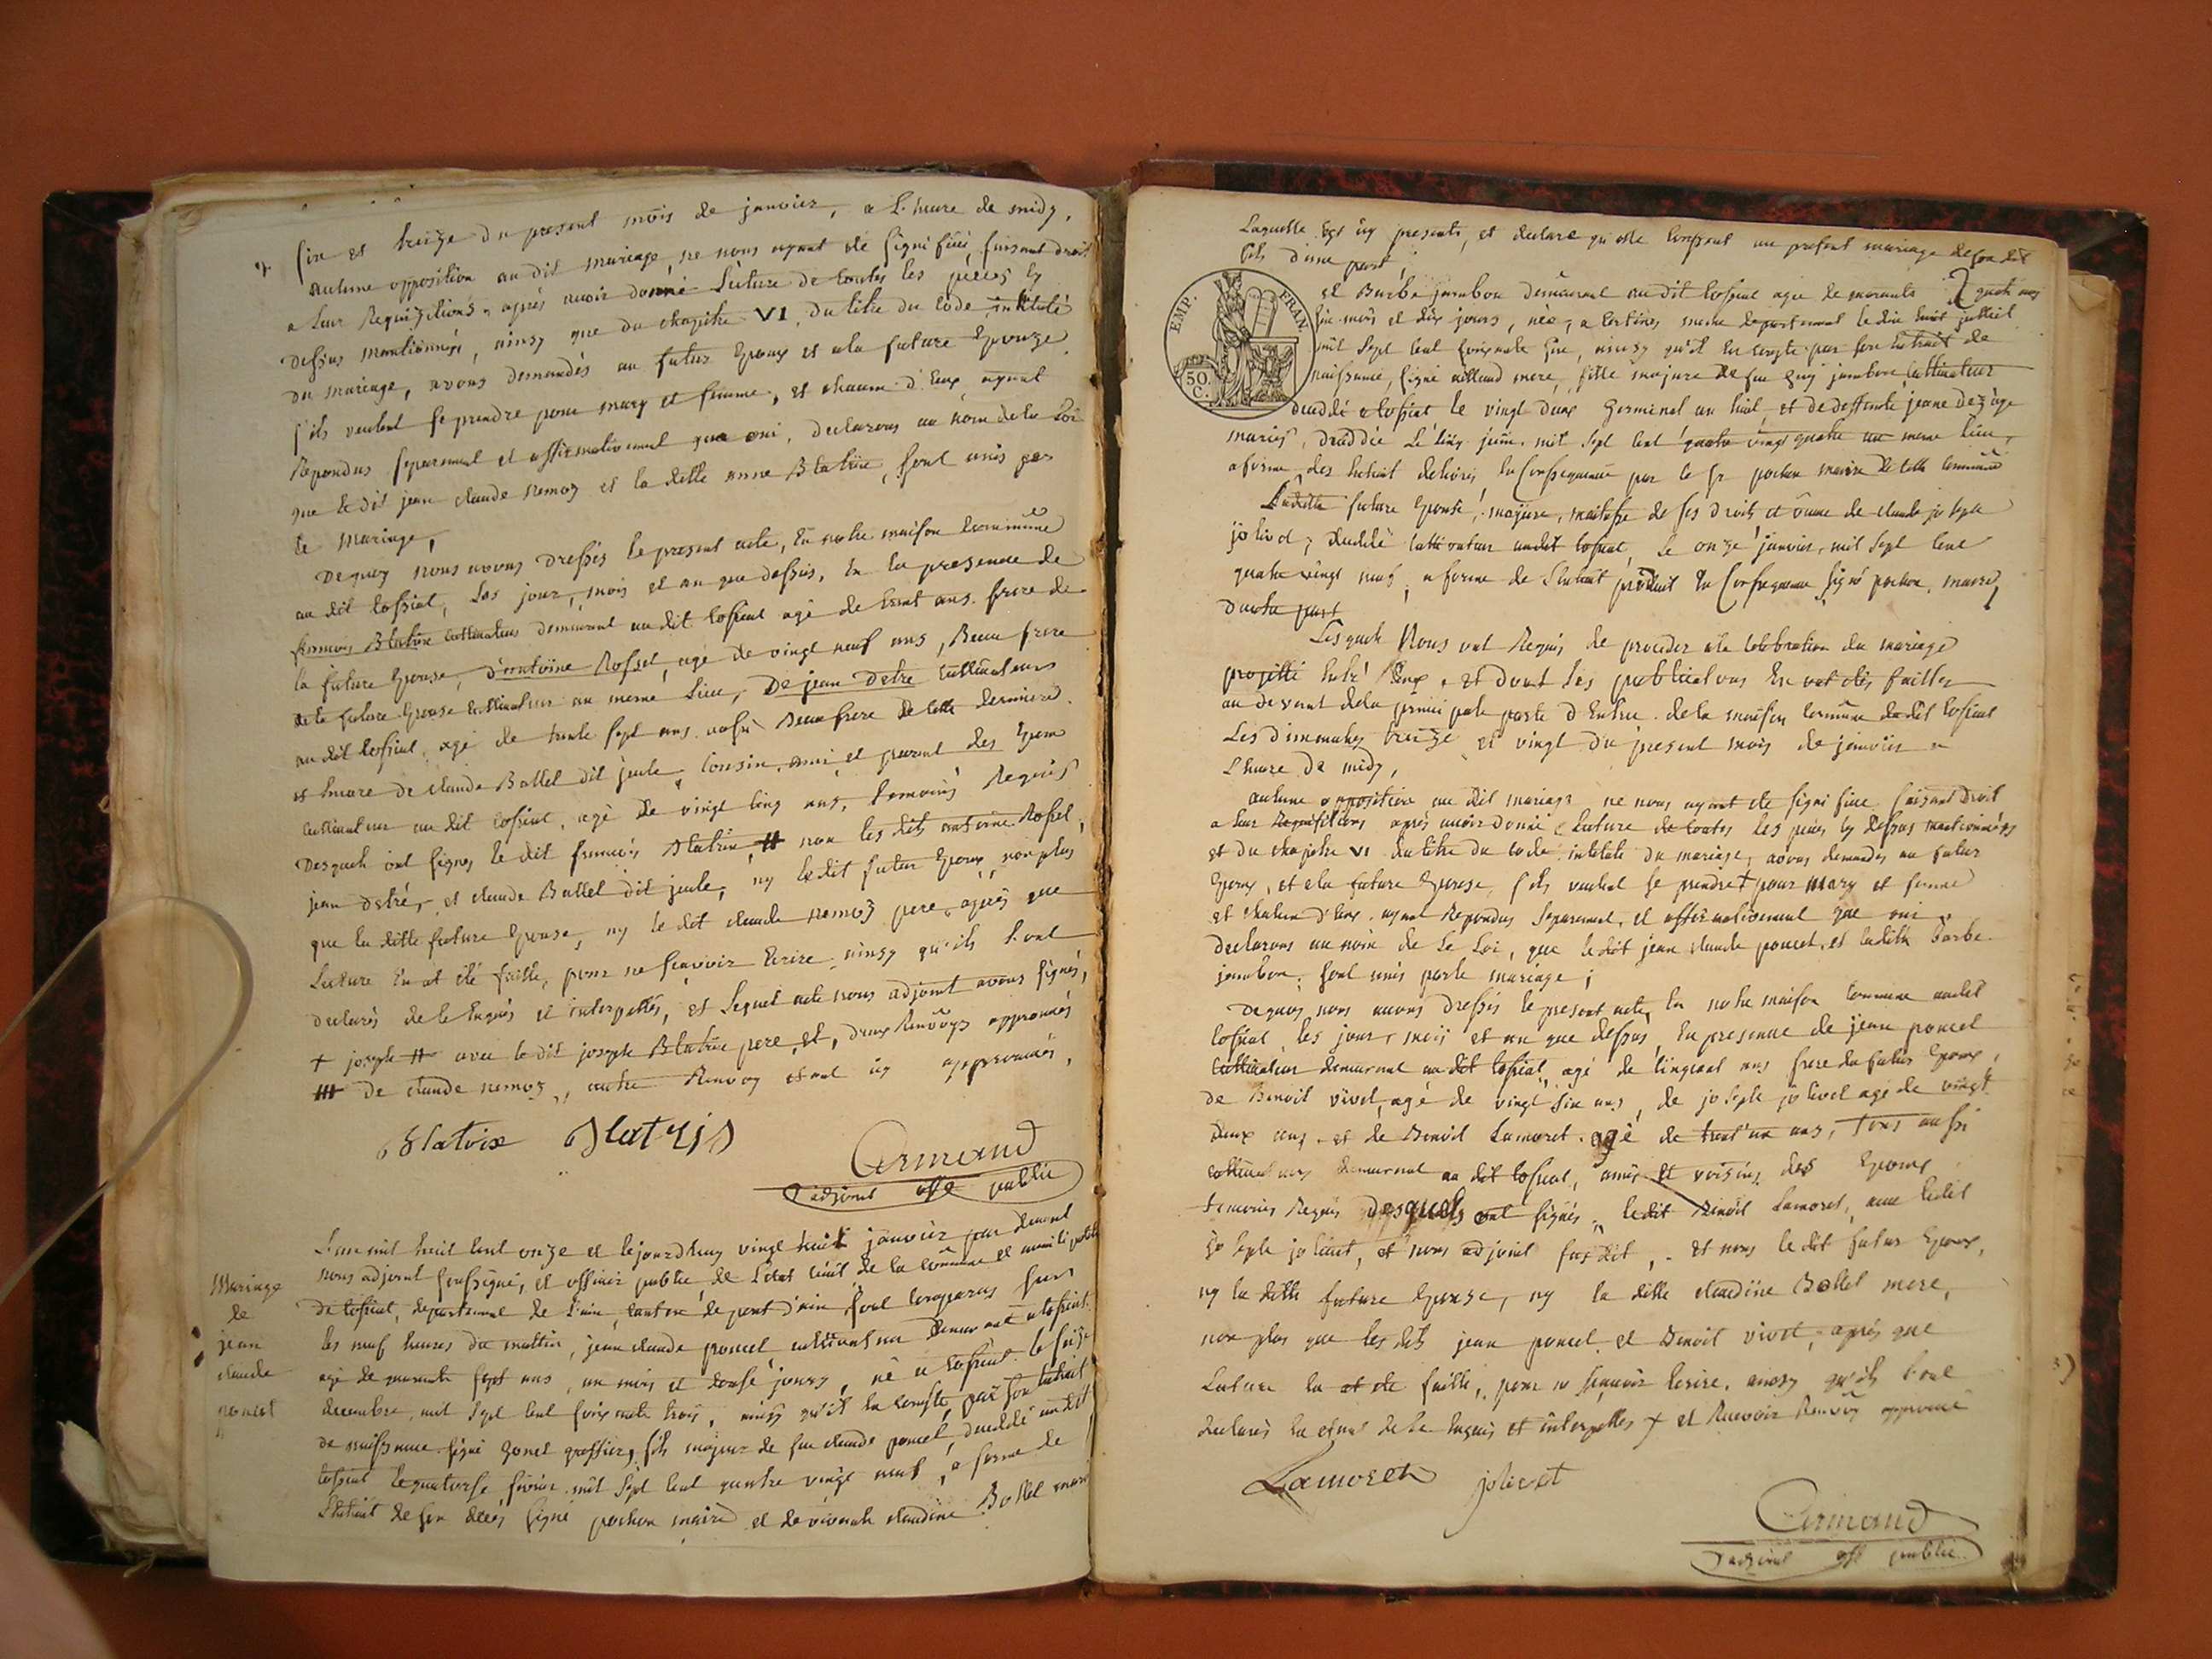 six et treize du present mois de janvier, a l'heure de midy,
aucune opposition au dit mariage, ne nous ayant été signifiéé, faisant droit
a leur Requizitions, aprés avoir donné lecture de toutes les piéces cy
dessus mentionnéés, ainsy que du chapitre VI. du titre du Code intitulé
du mariage, avons demandés au futur Epoux et a la future Epouze
s'ils veulent se prendre pour mary et femme, et chacun d'Eux ayant
Repondus separement et affirmativement que oui, declarons au nom de la Loi
que le dit jean claude nemoz et la ditte anne Blatrix, sont unis par
le mariage,
Dequoy nous avons dressés le present acte, En notre maison Commune
au dit Cossiat, Les jour, mois et an que dessus, En la presence de
francois Blatrix cultivateur demeurant au dit Cossiat agé de trent ans frere de
la future Epouse, d'antoine Rosset, agé de vingt neuf ans, Beau frere
de la future Epouse Cultivateur au meme Lieu, De jean Detré Cultivateur
au dit Cossiat, agé de trente sept ans aussi Beau frere de cette derniere
et Encore de claude Ballet dit jeule, Cousin, ami et parent des Epoux
cultivateur au dit Cossiat, agé de vingt cinq ans, temoins Requis
Desquels ont signes le dit francois Blatrix # non les dits antoine Rosset,
jean detré, et claude Ballet dit jeule, ny le dit futur Epoux, non plus
que la ditte future Epouse, ny le dit claude nemoz pere, aprés que
Lecture En at été faitte, pour ne scavoir Ecrire ainsy qu'ils l'ont
declarés de ce Enquis et interpettés, et Lequel acte nous adjoint avons signés,
+ joseph # avec le dit joseph Blatrix pere, et, deux Renvoys approuvés
# De claude nemoz, autre Renvoy etant icy approuvés,
Blatrix Blatrix
Armand
adjoint off public
Mariage
de
jean
claude
poncet
L'an mil huit cent onze et le jourd'huy vingt huit janvier par devant
nous adjoint soussigné, et officier public de l'etat civil de la commune et municipalité
de Cossiat, departement de l'ain, canton de pont d'ain sont comparus sur
les neuf heures du mattin, jean claude poncet cultivateur demeurant a Cossiat
agé de quarante sept ans, un mois et douse jours, né a Cossiat le seize
decembre, mil sept cent soixante trois, ainsy qu'il En conste, par son Extrait
de naissance signé gonet greffier, fils majeur de feu claude poncet, deceddé au dit
Cossiat le quatorse fevrier mil sept cent quatre vingt neuf, a forme de
l'Extrait de son decés signé pochon maire et de vivante claudine Bollet mere
Laquelle Est icy presente, et declare qu'elle Consent au present mariage de son dit
fils d'une part,
EMP. FRAN.
50. C.
et Barbe jambon demeurant au dit Cossiat agée de quarante quatre ans
six mois et dix jours, née a Certines meme departement le dix huit juillet
mil sept cent soixante six, ainsy qu'il En conste par son Extrait de
naissance, signé mere, fille majure de feu Guy jambon cultivateur
deceddé a Cossiat le vingt deux Germinal an huit, et de deffunte jeane
mariés, deceddée le cinq juin mil sept cent quatre vingt quatre au meme lieu,
a forme des Extrait delivrés En Consequence par le Sr pochon maire de cette Commune
Laditte future Epouse, majure, maitresse de ses droits et veuve de claude joseph
jolivet, deceddé cultivateur audit Cossiat, le onze janvier mil sept cent
quatre vingt neuf, a forme de l'Extrait produit En Consequence signé pochon maire,
d'autre part
Lesquels Nous ont Requis de proceder a la Celebration du mariage
projetté Entré Eux, et dont Les publications En ont étés faittes
au devant de la principale porte d'Entrée de la maison commune dudit Cossiat
Les dimanches treize et vingt du present mois de janvier a
L'heure de midy,
aucune opposition au dit mariage ne nous ayant été signifiée faisant droit
a leur Requisitions aprés avoir donné Lecture de toutes les piéces cy dessus mentionnées
et du chapitre VI du titre du Code intitulé du mariage, avons demandes au futur
Epoux, et a la future Epouse s'ils veulent se prendre + pour mary et femme
et chacun d'Eux ayant Repondus Separement, et affirmativement que oui
declarons au nom de la Loi, que le dit jean claude poncet, et laditte barbe
jambon, sont unis par le mariage;
Dequoy nous avons dressés le present acte En notre maison Commune audit
Cossiat, les jour, mois et an que dessus, En presence de jean poncet
cultivateur demeurant au dit Cossiat, agé de cinquant ans frere du futur Epoux,
de Benoit vivet, agé de vingt six ans, de joseph jolivet agé de vingt
deux ans, et de Benoit Lamoret agé de trent'un ans, tous aussi
cultivateurs demeurant au dit Cossiat, amis et voisins des Epoux
temoins Requis Desquels ont signés, ledit Benoit Lamoret, avec ledit
joseph jolivet, et nous adjoint susdit, et non le dit futur Epoux,
ny la ditte future Epouse, ny la ditte claudine Bollet mere,
non plus que les dits jean poncet et Benoit vivet, aprés que
Lecture En at été faitte, pour ne scavoir Ecrire, ainsy qu'ils l'ont
declarés En etant de ce Enquis et interpettés + et Renvoy approuvé
Lamoret jolivet
Armand
adjoint off public